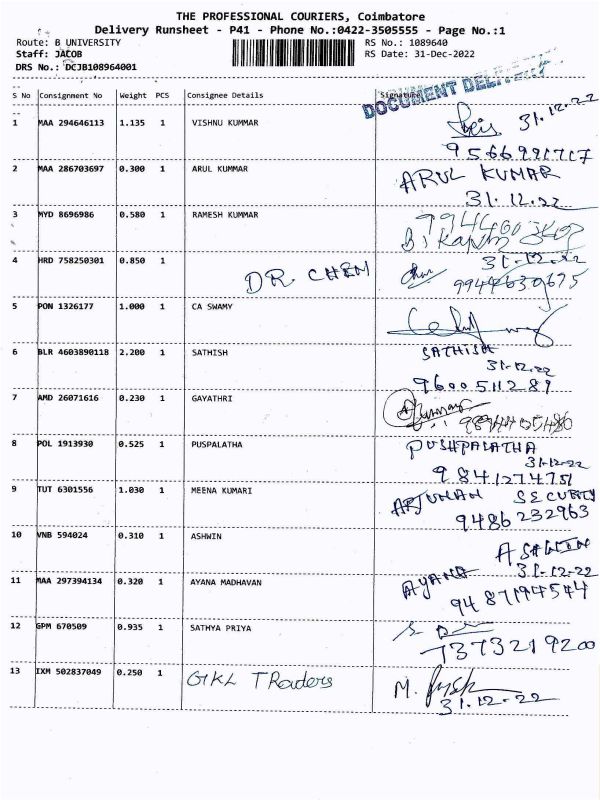 THE PROFESSIONAL COURIERS, Coimbatore
Delivery Runsheet - P41 - Phone No.:0422-3505555 - Page No.:1
Route: B UNIVERSITY RS No.: 1089640
Staff: JACOB RS Date: 31-Dec-2022
DRS No.: DCJB108964001
DOCUMENT DELIVERY
S No Consignment No Weight PCS Consignee Details Signature
1 MAA 294646113 1.135 1 VISHNU KUMMAR 31.12.22
9566991717
2 MAA 286703697 0.300 1 ARUL KUMMAR ARUL KUMAR
31.12.22
3 MYD 8696986 0.580 1 RAMESH KUMMAR
4 HRD 758250301 0.850 1 DR. CHEM 31-12-22
9944630675
5 PON 1326177 1.000 1 CA SWAMY
6 BLR 4603890118 2.200 1 SATHISH SATHISH
31-12.22
9600511289
7 AMD 26071616 0.230 1 GAYATHRI
8 POL 1913930 0.525 1 PUSPALATHA PUSHPALATHA
31-12-22
9841274751
9 TUT 6301556 1.030 1 MEENA KUMARI ARJUNAN SECURITY
9486232963
10 VNB 594024 0.310 1 ASHWIN ASHWIN
31-12-22
11 MAA 297394134 0.320 1 AYANA MADHAVAN AYANA
9487194544
12 GPM 670509 0.935 1 SATHYA PRIYA
7373219200
13 IXM 502837049 0.250 1 GKL TRaders M.
31.12-22